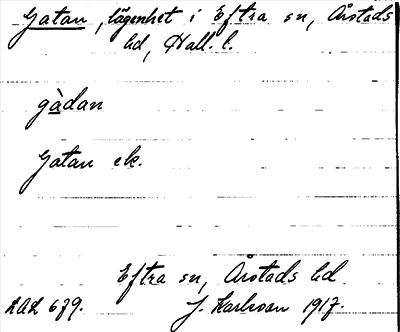 Gatan, lägenhet i Eftra sn, Årstads
hd, Hall. l.
gàdan
Gatan ek.
Eftra sn, Årstads hd
679. J. Karlsson 1917.